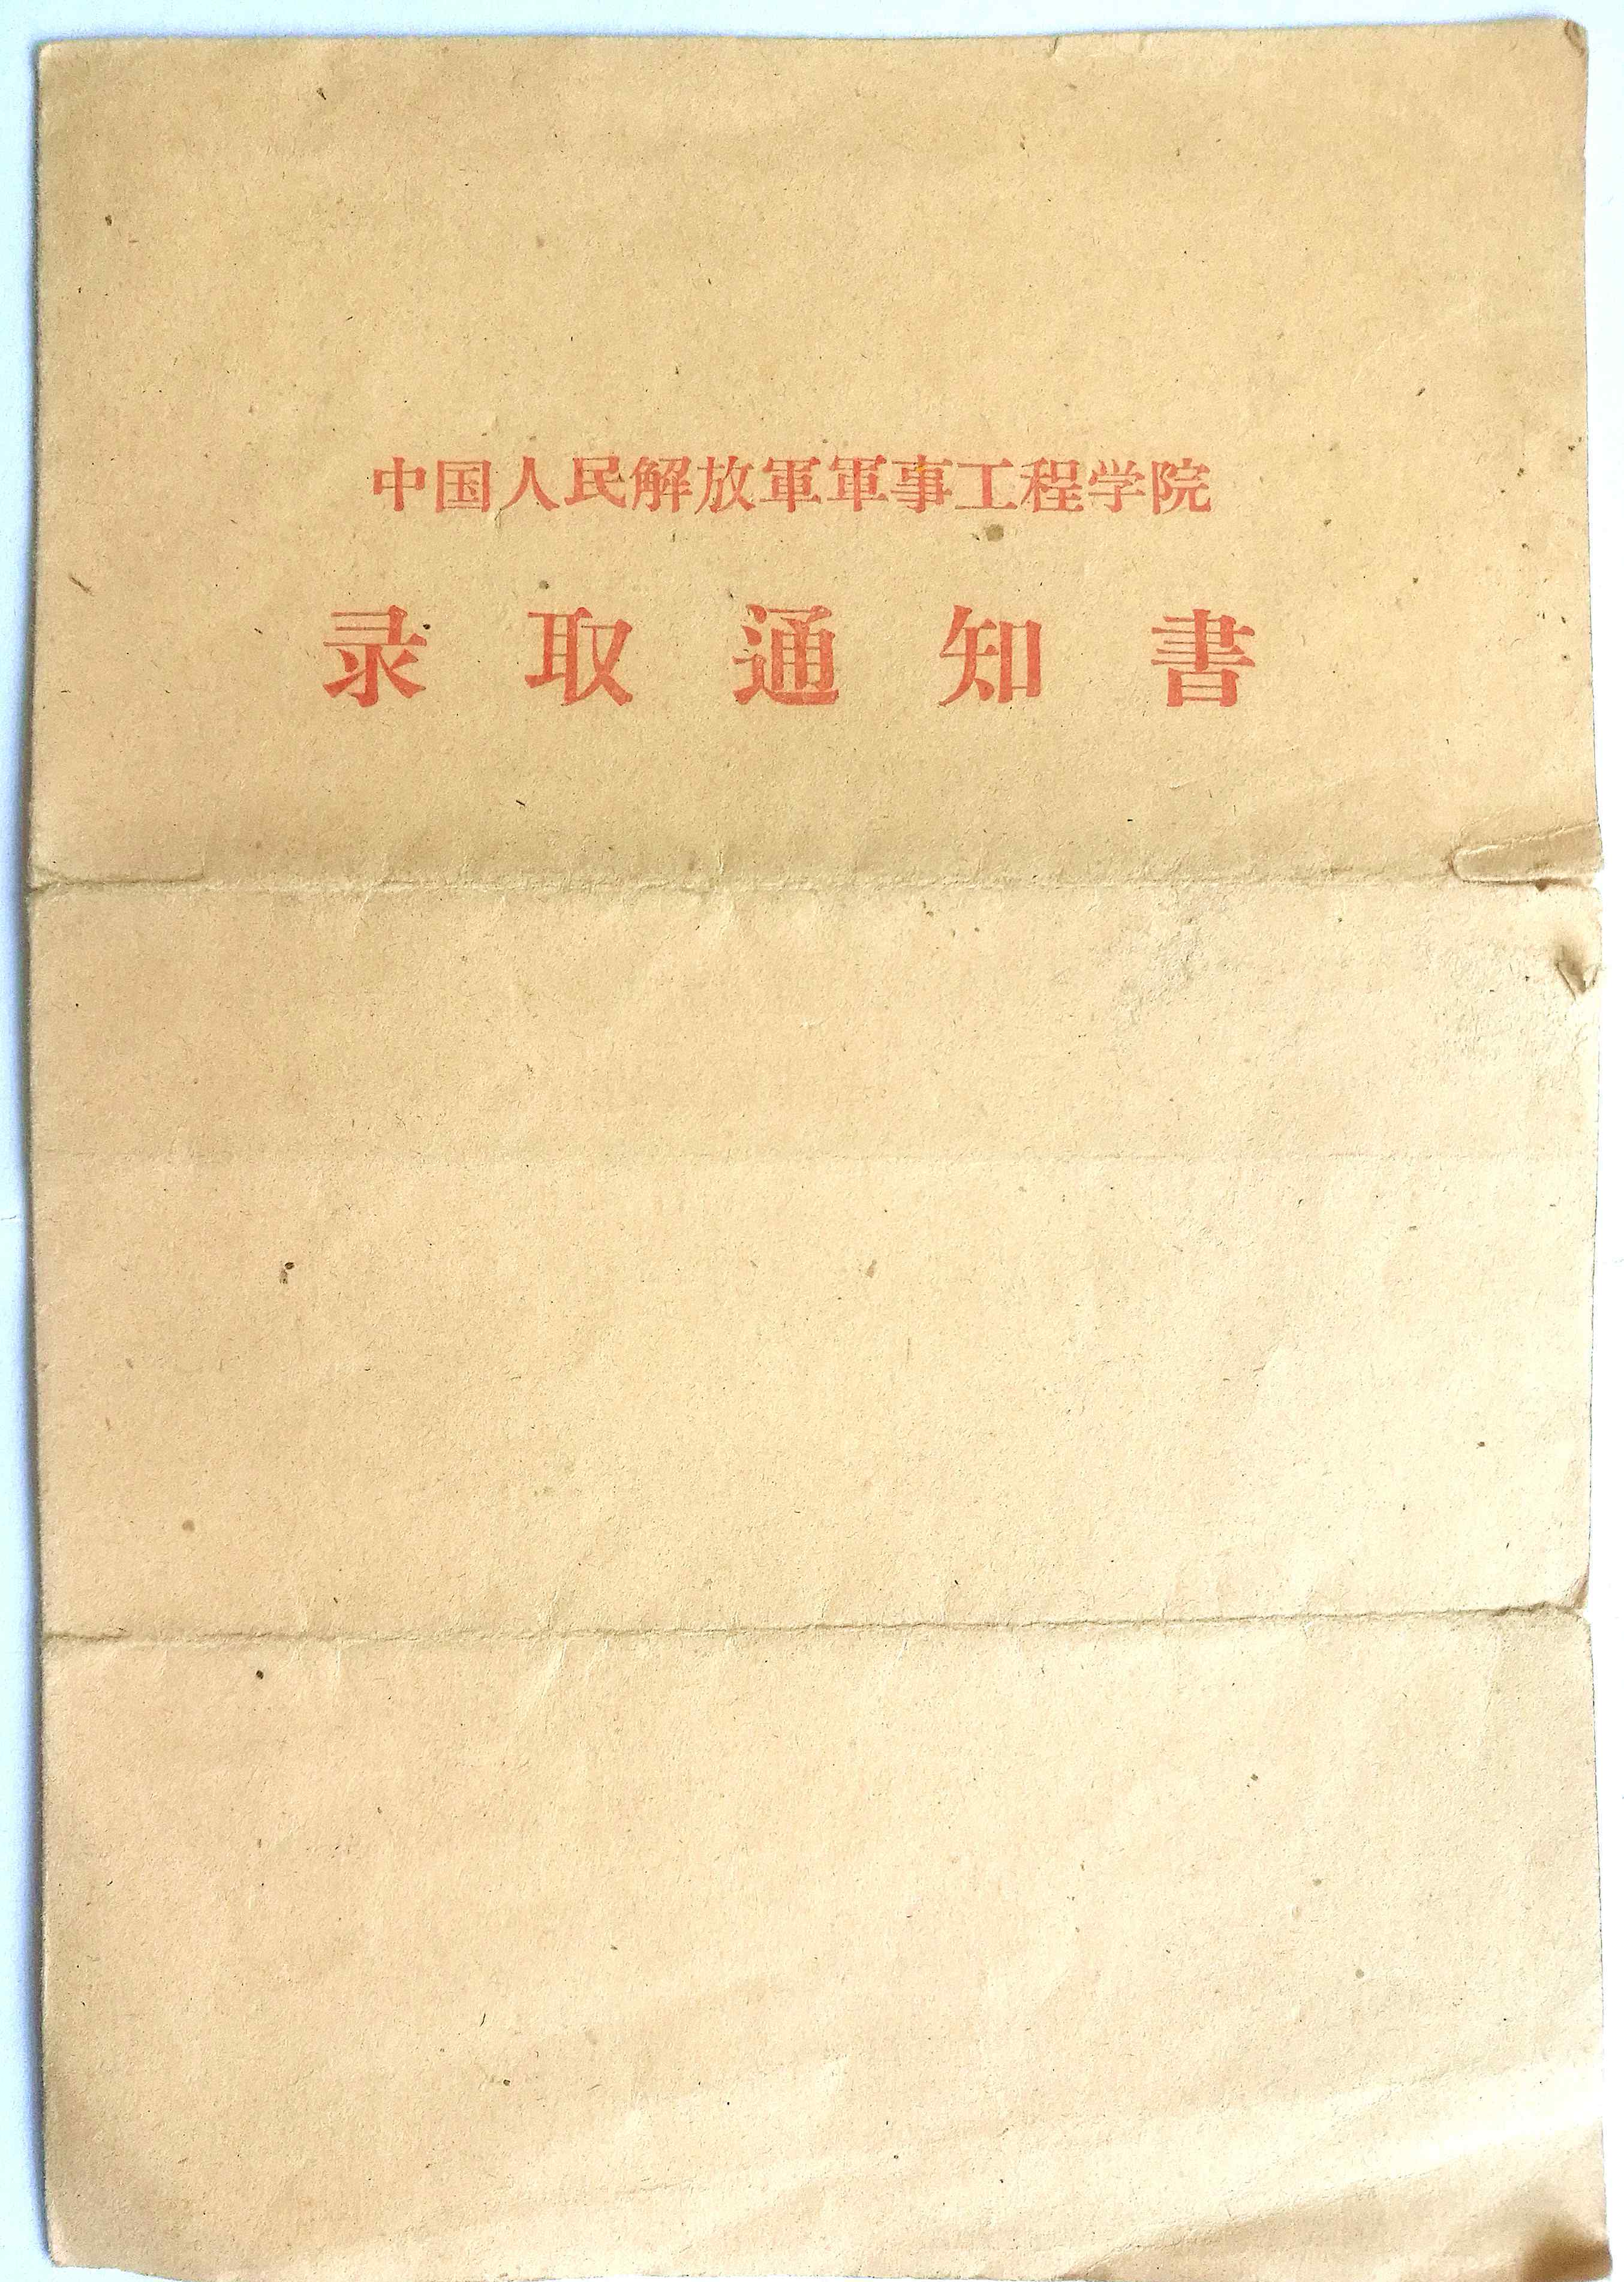 中国人民解放軍軍事工程学院
录取通知書